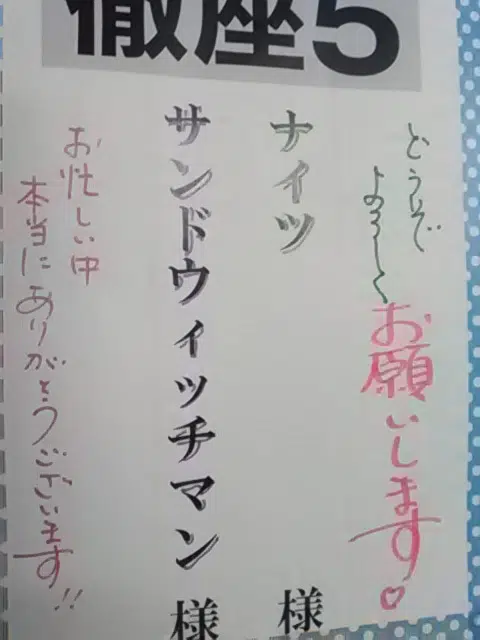 徹座5
どうぞ
よろしく
お願いします♡
ナイツ 様
サンドウィッチマン 様
お忙しい中
本当にありがとうございます!!